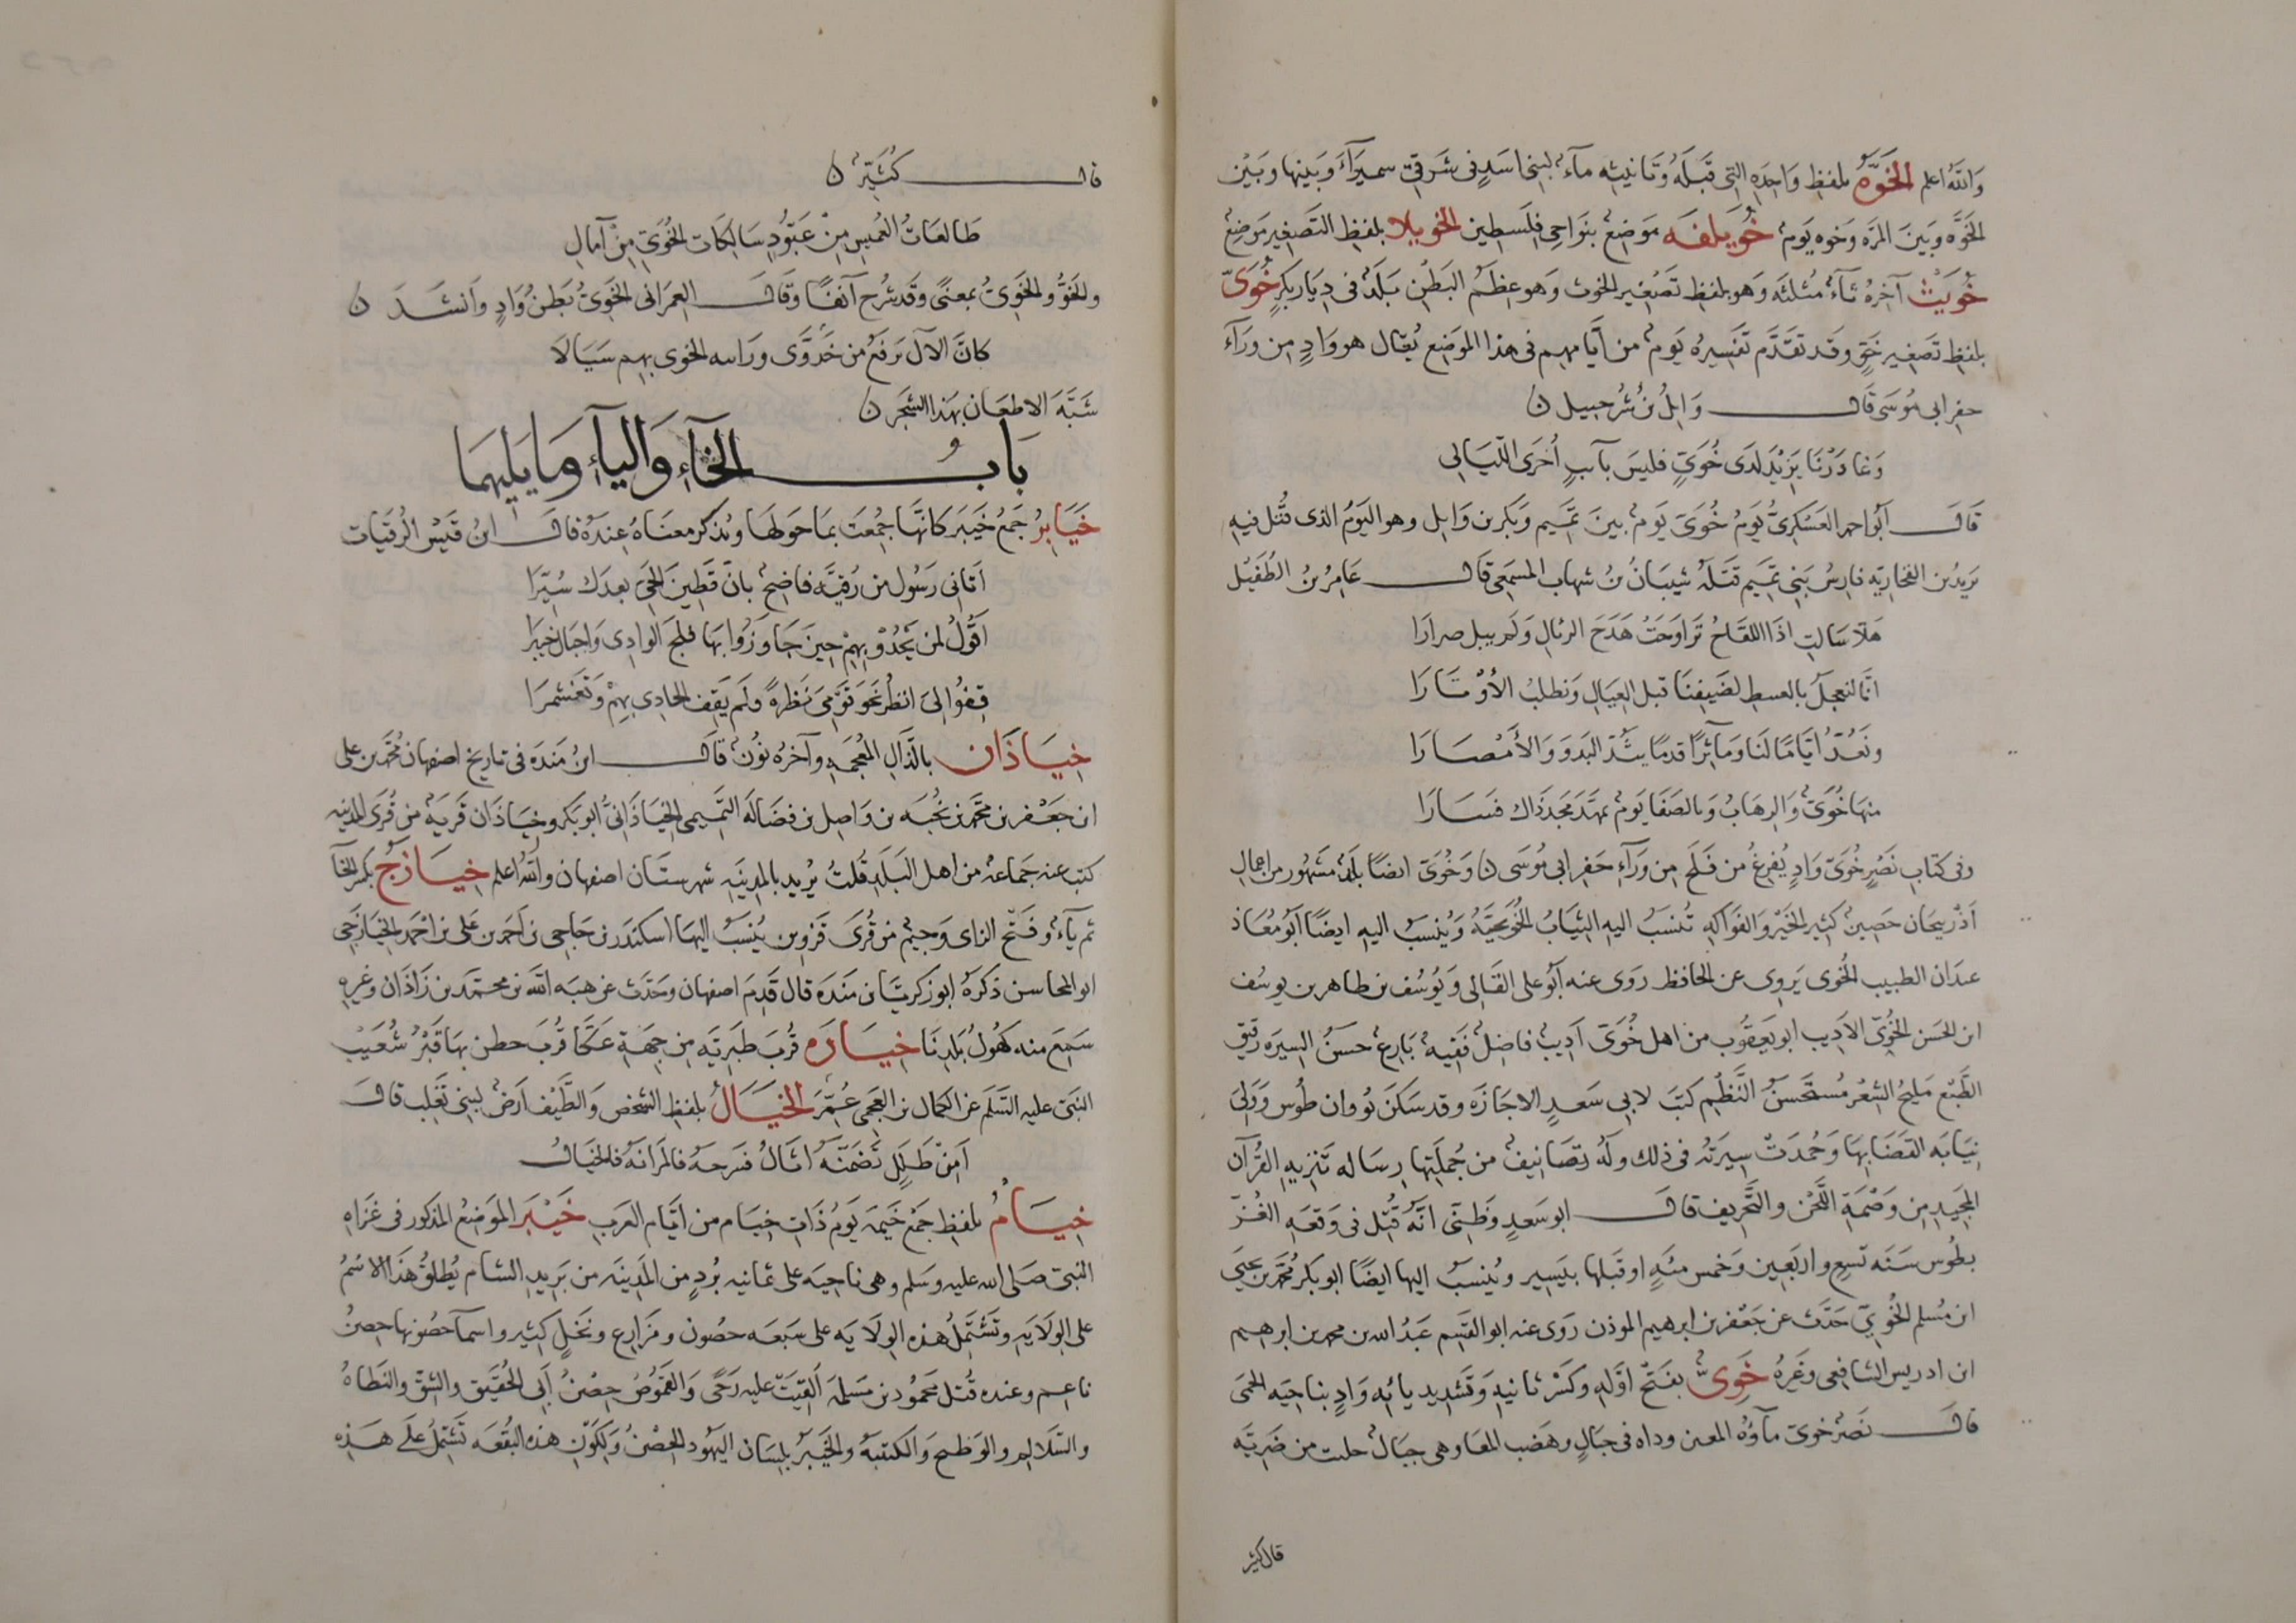 والله اعلم الخَوَّهُ بلفظ واحده التى قبله وتانيثه مآء لبنى اسد فى شرقى سميرآء وبينها وبين
الخوّه وبين المره وخوه يوم خُوَيلفَه موضع بنواحى فلسطين الخويلا بلفظ التصغير موضع
خُوَيْث آخره ثآء مثلثه وهو بلفظ تصغير الخوث وهو عظم البطن بلد فى ديار بكر خُوَىّ
بلفظ تصغير خوّ وقد تقدّم تفسيره يوم من أيامهم فى هذا الموضع يقال هو واد من ورآء
حفر ابى موسى قال وايل بن شرحبيل
وغادرنا يزيد لدى خُوَىّ فليس بآبب أخرى الليالى
قال أبو احمد العسكرىّ يوم خُوَىّ يوم بين تميم وبكر بن وايل وهو اليوم الذى قُتل فيه
يزيد بن القحاريه فارس بنى تميم قتله شيبان بن شهاب المسمعى قال عامر بن الطفيل
هلا سالت اذا اللقاح تراوحت هدج الرئال ولم يبل صرارا
انّا لنعجل بالعسط لضيفنا قبل العيال ونطلب الأوتارا
ونعُدّ ايّاما لنا ومآثرًا قدما يبذّ البدو والأمصارا
منها خُوَىّ والرهاب وبالصفا يوم تمهّد مجد ذاك فسارا
وفى كتاب نصر خُوَىّ واد يُفرغ من فلج من ورآء حفر ابى موسى وخُوَىّ ايضًا بلد مشهور من اعمال
أذربيجان حصين كثير الخير والفواكه تُنسب اليه الثياب الخُويّجيّة ويُنسب اليه ايضًا ابو معاذ
عبدان الطبيب الخُوى يروى عن الحافظ روى عنه ابو على القالى ويوسف بن طاهر بن يوسف
ابن الحسن الخُوِىّ الاديب ابو يعقوب من اهل خُوَىّ اديب فاضل فقيه بارع حسن السيره رقيق
الطبع مليح الشعر مستحسن النظم كتب لابى سعد الاجازه وقد سكن نُوقان طوس وولى
نيابه القضا بها وحُمدت سيرته فى ذلك وله تصانيف من جُملتها رساله تنزيه القرآن
المجيد من وصمة اللحن والتحريف قال ابو سعد وظنى انّه قُتل فى وقعه الغُزّ
بطوس سنه تسع واربعين وخمس مئه او قبلها بيسير ويُنسب اليها ايضًا ابو بكر محمد بن يحيى
ابن مسلم الخُوِىّ حدّث عن جعفر بن ابرهيم الموذن روى عنه ابو القسم عبد الله بن محمد بن ابرهيم
ابن ادريس الشافعى وغيره خَوِىٌّ بفتح اوّله وكسر ثانيه وتشديد يائه واد بناحيه الحمى
قال نصر خوىّ مآؤه المعين وداه فى جبال وهضب المعا وهى جبال حلت من ضريّه
قال كثير
قال كُثيّر
طالعات الغميس من عبّود سالكات الخُوَىّ من آمال
والخَوُّ والخَوِىُّ بمعنًى وقد شرح آنفًا وقال العمرانى الخَوِىّ بطن واد وانشد
كانّ الآل يرفع من خَزَوَّى وراسه الخوى بهم سيالا
شبّه الاظعان بهذا الشجر
بابُ الخآء واليآء وما يليهما
خَيَابِرُ جمع خيبر كانّها جُمعت بما حولها ويذكر معناه عنده قال ابن قيس الرقيات
أتانى رسول من رُقيّه فاضح بانّ قطين الحىّ بعدك سُيّرا
اقول لمن يحدو بهم حين جاوزوا بها فلج الوادى واجبال خيبرا
قِفوا لى انظر نحو قومى نظرةً ولم يقف الحادى بهم وتغشمرا
خِيَاذَان بالذال المعجمه وآخره نون قال ابن منده فى تاريخ اصفهان محمد بن على
ابن جعفر بن محمد بن نُجبه بن واصل بن فضاله التميمى الخِياذانىُّ ابو بكر وخياذان قريه من قرى المدينه
كتب عنه جماعه من اهل البلد قلت يُريد بالمدينه شهرستان اصفهان والله اعلم خِيَازَجُ بكسر الخآ
ثم يآء وفتح الزاى وجيم من قُرى قزوين يُنسب اليها اسكندر بن حاجى بن احمد بن على بن احمد الخيازجى
ابو المحاسن ذكره ابو زكريا بن منده قال قدم اصفهان وحدّث عن هبه الله بن محمد بن زاذان وغيره
سمع منه كهول بلدنا خِيَارَه قُرب طبريّه من جهة عكّا قُرب حطين بها قبر شُعيب
النبى عليه السلم عن الكمال بن العجمى عُمّر الخَيَالُ بلفظ الشخص والطيف ارض لبنى تغلب قال
أمن طلل تضمّنه اثال فسرحه فالمرانه فالخيال
خِيَامُ بلفظ جمع خيمه يوم ذات خيام من ايّام العرب خَيْبَر الموضع المذكور فى غزاه
النبى صلى الله عليه وسلم وهى ناحيه على ثمانيه بُرد من المدينه من بريد الشام يُطلق هذا الاسم
على الولايه وتشتمل هذه الولايه على سبعه حصون ومزارع ونخل كثير واسمآ حصونها حصن
ناعم وعنده قُتل محمود بن مسلمه القيت عليه رحًى والقموص حصن أبى الحُقيق والشق والنطاه
والسلالم والوطيح والكتيبه والخيبر بلسان اليهود الحصن ولكون هذه البقعه تشتمل على هذه